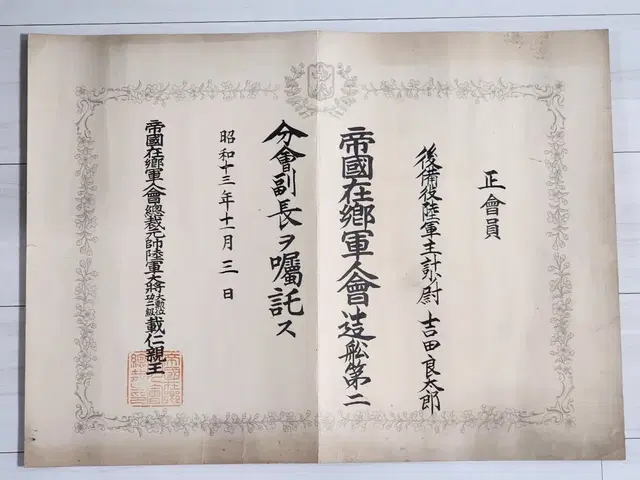 正會員
後備役陸軍主計少尉 吉田良太郎
帝國在鄕軍人會造船第二
分會副長ヲ囑託ス
昭和十三年十一月三日
帝國在鄕軍人會總裁元帥陸軍大將大勲位功二級載仁親王